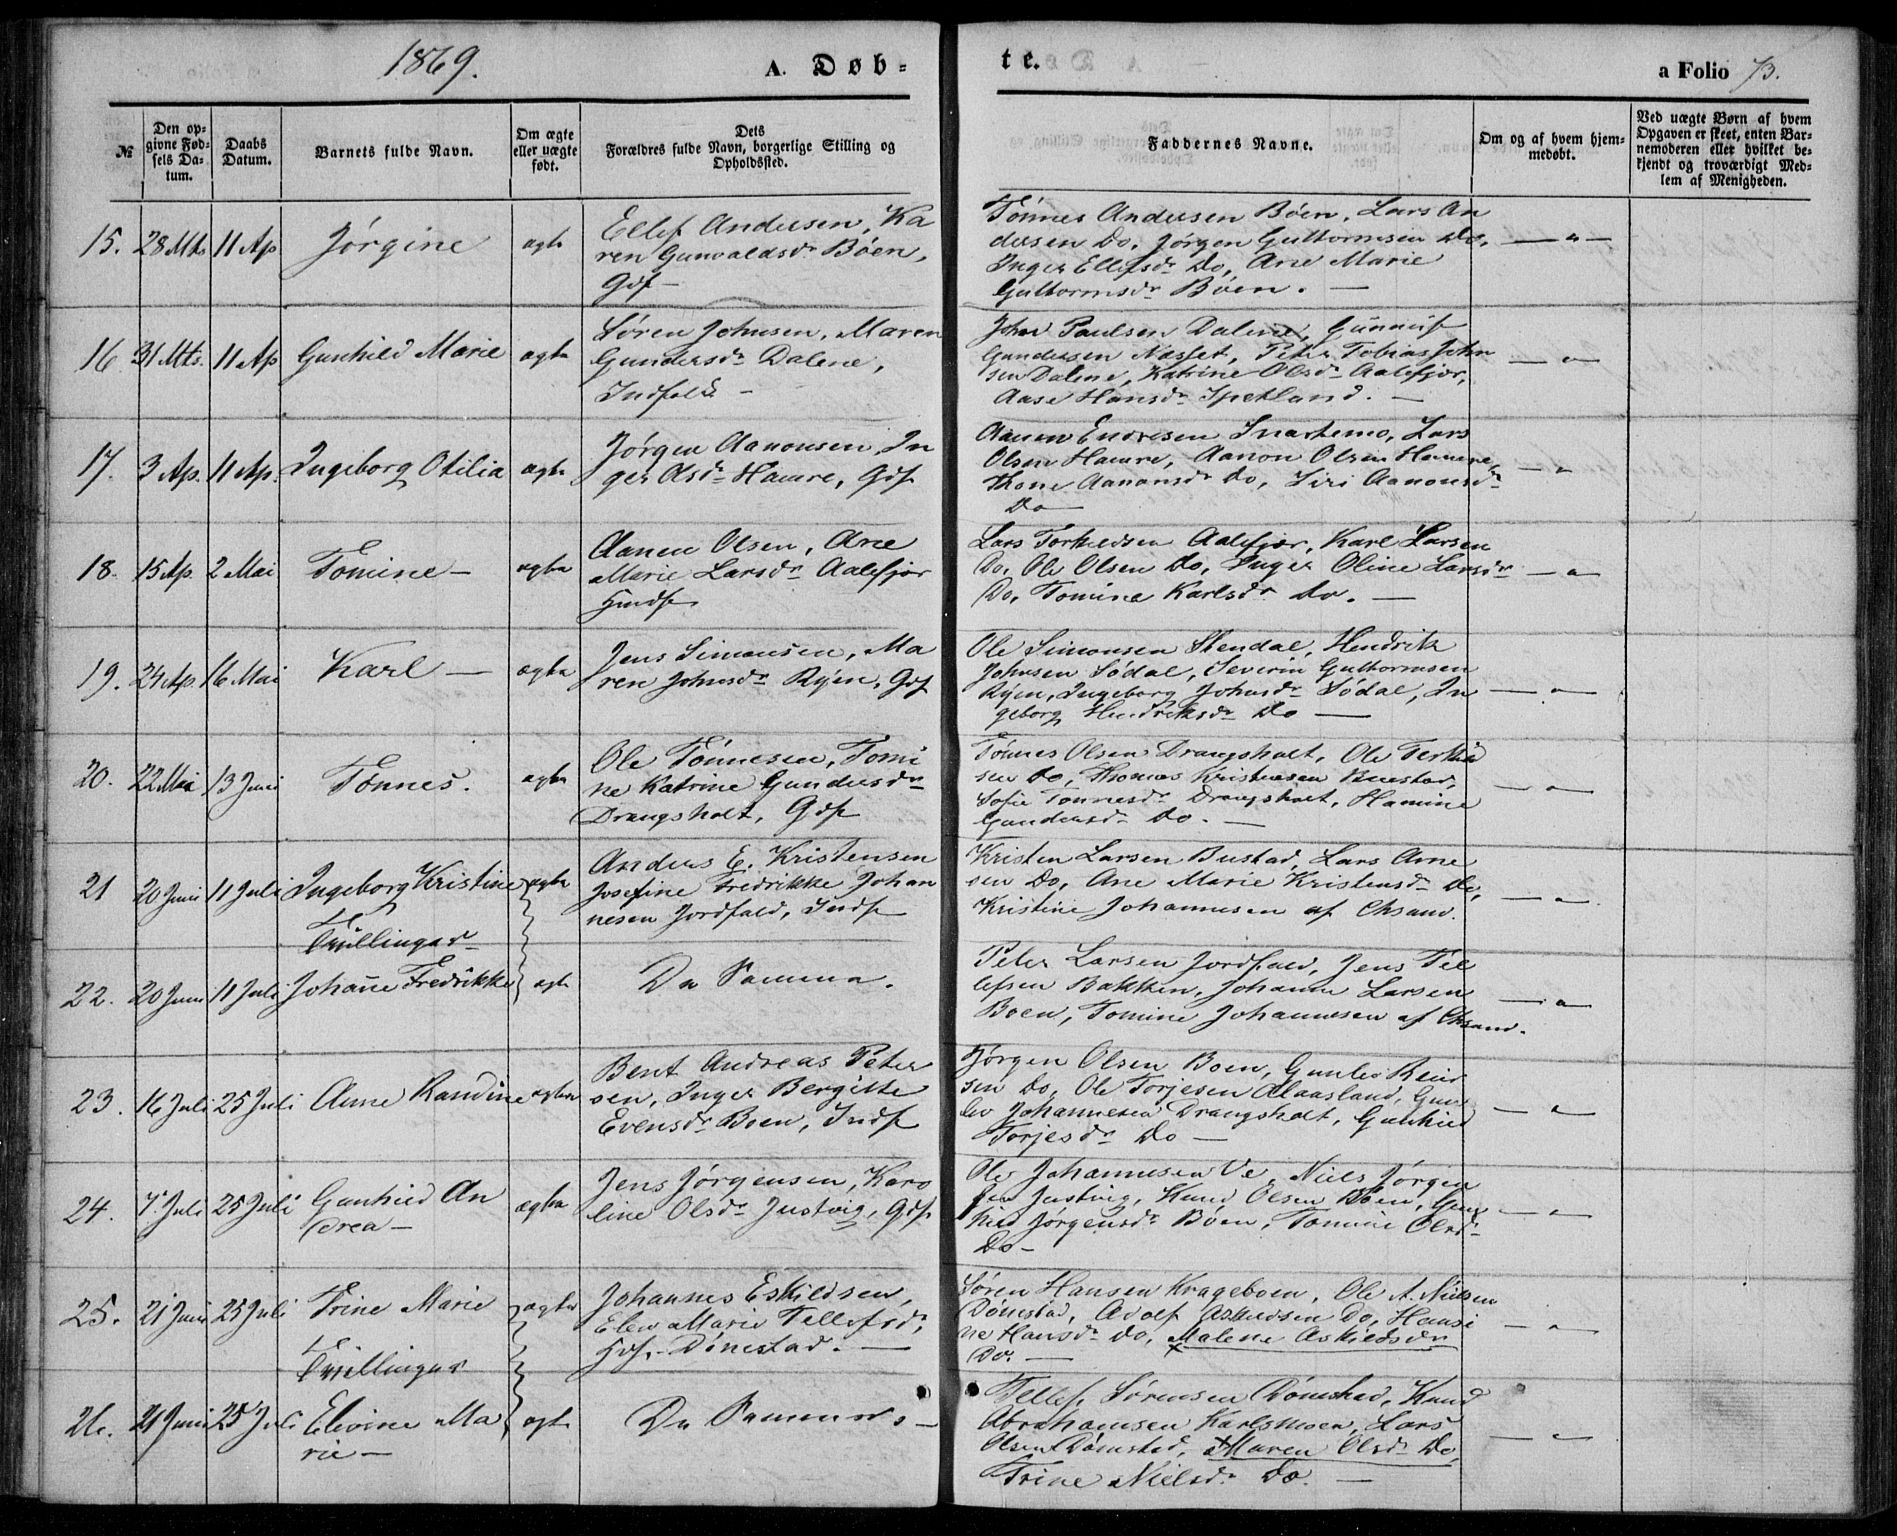 1869.
A. Døb-
te.
a Folio 73.
№
Den op-
givne Fød-
sels Da-
tum.
Daabs
Datum.
Barnets fulde Navn.
Om ægte
eller uægte
født.
Dets
Forældres fulde Navn, borgerlige Stilling og
Opholdssted.
Faddernes Navne.
Om og af hvem hjem-
medøbt.
Ved uægte Børn af hvem
Opgaven er skeet, enten Bar-
nemoderen eller hvilket be-
kjendt og troværdigt Med-
lem af Menigheden.
15. 28 Mts 11 Ap Jørgine ægte
Ellef Andersen, Ka
ren Gunvaldsdr Böen,
Gdf
Tönnes Andersen Böen, Lars An
dersen Do, Jørgen Guttormsen Do,
Inger Ellefsdr Do, Ane Marie
Guttormsdr Böen. —
16 31 Mts. 11 Ap Gunhild Marie ægte
Søren Johnsen, Maren
Gundersdr Dalene,
Indfolk —
John Paulsen Dalene, Gunnuf
Gundersen Næsset, Peter Tobias John
sen Dalene, Katrine Olsdr Aalefjær,
Aase Hansdr Spetland. —
17. 3 Ap. 11 Ap. Ingeborg Otilia ægte
Jørgen Aanonsen, In
ger Asdr Hamre, Gdf
Aanen Endresen Snartemo, Lars
Olsen Hamre, Aanon Olsen Hamre,
Thone Aanonsdr Do, Siri Aanonsdr
Do —
18. 15 Ap. 2 Mai Tomine — ægte
Aanen Olsen, Ane
Marie Larsdr Aalefjær
Hmdf
Lars Torkildsen Aalefjær, Karl Larsen
Do, Ole Olsen Do, Inger Oline Larsdr
Do, Tomine Karlsdr Do. —
19. 24 Ap. 16 Mai Karl — ægte
Jens Simonsen, Ma
ren Johnsdr Ryen, Gdf
Ole Simonsen Stendal, Hendrik
Johnsen Södal, Severin Guttormsen
Ryen, Ingeborg Johnsdr Södal, In
geborg Hendriksdr Do —
20. 22 Mai 13 Juni Tønnes. ægte
Ole Tönnesen, Tomi
ne Katrine Gundersdr
Drangsholt, Gdf
Tönnes Olsen Drangsholt, Ole Terkild
sen Do, Thomas Kristensen Buestad,
Sofie Tønnesdr Drangsholt, Hamine
Gundersdr Do. —
21 20 Juni 11 Juli Ingeborg Kristine ægte
Tvillinger
Anders E. Kristensen
Josefine Fredrikke Johan
nesen Jordfald, Indf
Kristen Larsen Bustad, Lars Arne
sen Do, Ane Marie Kristensdr Do,
Kristine Johannesen af Chsand.
22. 20 Juni 11 Juli Johanne Fredrikke ægte
De Samme.
Peter Larsen Jordfald, Jens Tel
lefsen Bakken, Johanne Larsen
Boen, Tomine Johannesen af Chsand.
23. 16 Juli 25 Juli Anne Randine ægte
Bent Andreas Peter
sen, Inger Bergitte
Evensdr Boen, Indf
Jørgen Olsen Boen, Gunlev Reier
sen Do, Ole Torjesen Aaasland, Gun
lev Johannesen Drangsholt, Gunhild
Torjesdr Do —
24. 7 Juli 25 Juli Gunhild An
drea — ægte
Jens Jørgensen, Karo
line Olsdr Justvig, Gdf
Ole Johannesen Ve, Niels Jørgen
sen Justvig, Knud Olsen Böen, Gun
hild Jørgensdr Böen, Tomine Olsdr
Do —
25. 21 Juni 25 Juli Trine Marie ægte
Tvillinger
Johannes Eskildsen,
Elen Marie Tellefsdr,
Hdf. Dönestad. —
Søren Hansen Krageboen, Ole A. Nielsen
Dönestad, Adolf Askildsen Do, Hansi
ne Hansdr Do, Malene Askildsdr
Do. —
26. 21 Juni 25 Juli Elevine Ma
rie — ægte
De Samme. —
Tellef Sørensen Dönestad, Knud
Abrahamsen Karlsmoen, Lars
Olsen Dönestad, Maren Olsdr Do,
Trine Nielsdr Do. —